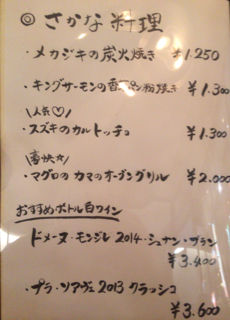 ◎ さかな料理
・メカジキの炭火焼き ¥1.250
・キングサーモンの香草パン粉焼き ¥1.300
\人気♡/
・スズキのカルトッチョ ¥1.300
\豪快☆/
・マグロのカマのオーブングリル ¥2.000
おすすめボトル白ワイン
ドメーヌ・モンジレ 2014・シュナン・ブラン
¥3.400
・プラ・ソアヴェ 2013 クラッシコ
¥3.600